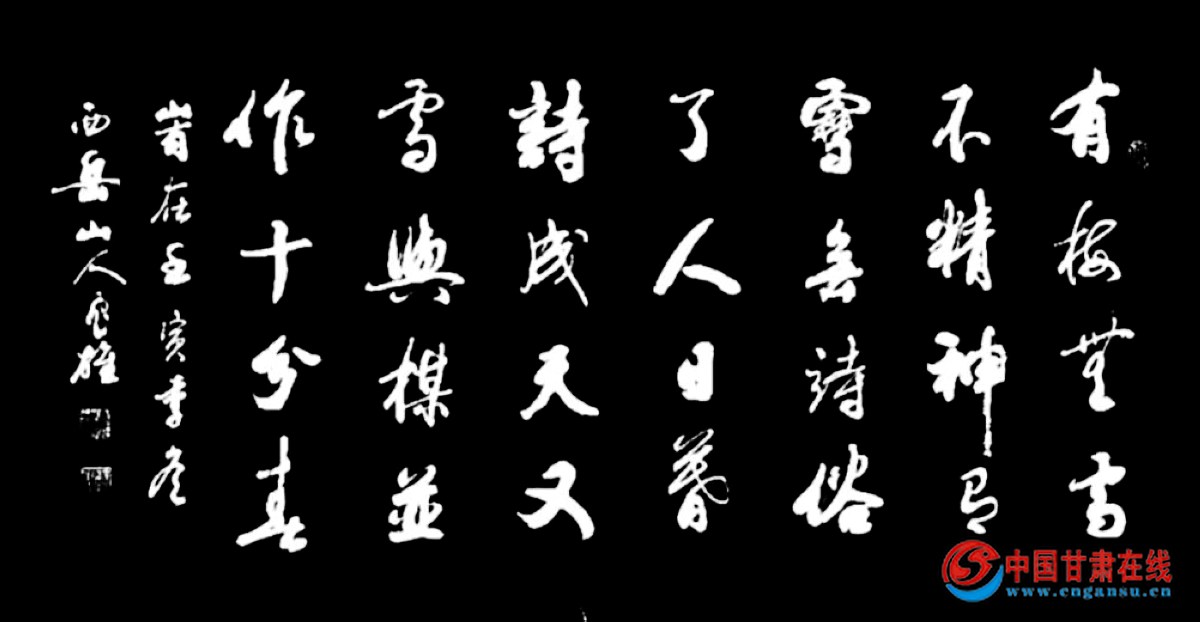 有梅無雪
不精神有
雪無詩俗
了人日暮
詩成天又
雪與楳並
作十分春
峕在壬寅季冬
西岳山人良雄
中国甘肃在线
www.cngansu.cn